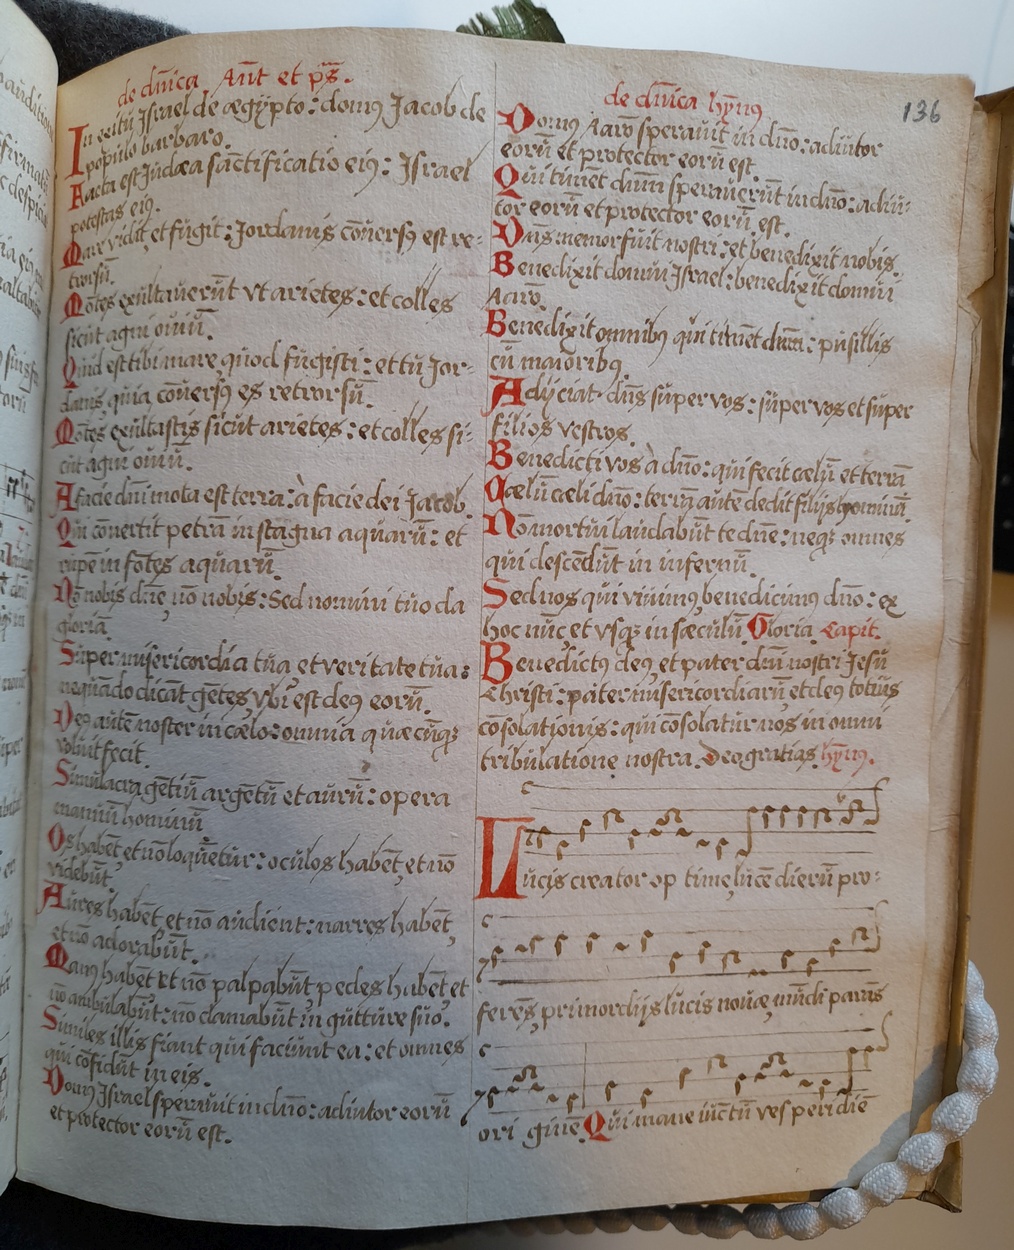 de dn̄ica Ant̄ et ps̄.
In exitū Israel de ægypto: domꝰ Jacob de
populo barbaro.
Facta est Judæa sanctificatio eiꝰ: Israel
potestas eiꝰ.
Mare vidit, et fugit: Jordanis cōuersꝰ est re-
trorsū.
Mōtes exultauerūt vt arietes: et colles
sicut agni ouiū.
Quid est tibi mare quod fugisti: et tu Jor-
danis quia cōuersꝰ es retrorsū.
Mōtes exultastis sicut arietes: et colles si-
cut agni ouiū.
A facie dn̄i mota est terra: à facie dei Jacob.
Qui cōuertit petrā in stagna aquarū: et
rupē in fōtes aquarū.
Nō nobis dn̄e nō nobis: Sed nomini tuo da
gloriā.
Super misericordia tua, et veritate tua:
nequādo dicāt gētes, vbi est deꝰ eorū.
Deꝰ autē noster in cælo: omnia quæcūqꝫ
voluit fecit.
Simulacra gētiū argētū et aurū: opera
manuū hominū
Os habēt, et nō loquētur: oculos habēt, et nō
videbūt.
Aures habēt, et nō audient: narres habēt,
et nō adorabūt.
Manꝰ habēt et nō palpabūt pedes habēt et
nō ambulabūt: nō clamabūt in gutture suo.
Similes illis fiant qui faciunt ea: et omnes
qui cōfidūt in eis.
Domꝰ Israel sperauit in dn̄o: adiutor eorū
et protector eorū est.
de dn̄ica hym̄ꝰ
136
Domꝰ Aarō sperauit in dn̄o: adiutor
eorū et protector eorū est.
Qui timēt dn̄m sperauerūt in dn̄o: adiu-
tor eorū et protector eorū est.
Dn̄s memor fuit nostri: et benedixit nobis.
Benedixit domui Israel: benedixit domui
Aarō.
Benedixit omnibꝰ qui timēt dn̄m: pusillis
cū maioribꝰ.
Adijciat dn̄s super vos: super vos et super
filios vestros.
Benedicti vos à dn̄o: qui fecit cælū et terrā
Cælū cæli dn̄o: terrā autē dedit filijs hominū.
Nō mortui laudabūt te dn̄e: neqꝫ omnes
qui descēdūt in infernū.
Sed nos qui viuimꝰ, benedicimꝰ dn̄o: ex
hoc nūc et vsqꝫ in sæculū. Gloria Capit.
Benedictꝰ deꝰ, et pater dn̄i nostri Jesu
Christi: pater misericordiarū, et deꝰ totius
cōsolationis: qui cōsolatur nos in omni
tribulatione nostra. Deo gratias hym̄ꝰ.
Lucis creator op time, lucē dierū pro-
ferēs, primordijs lucis nouæ, mūdi parās
ori ginē. Qui mane iūctū vesperi diē